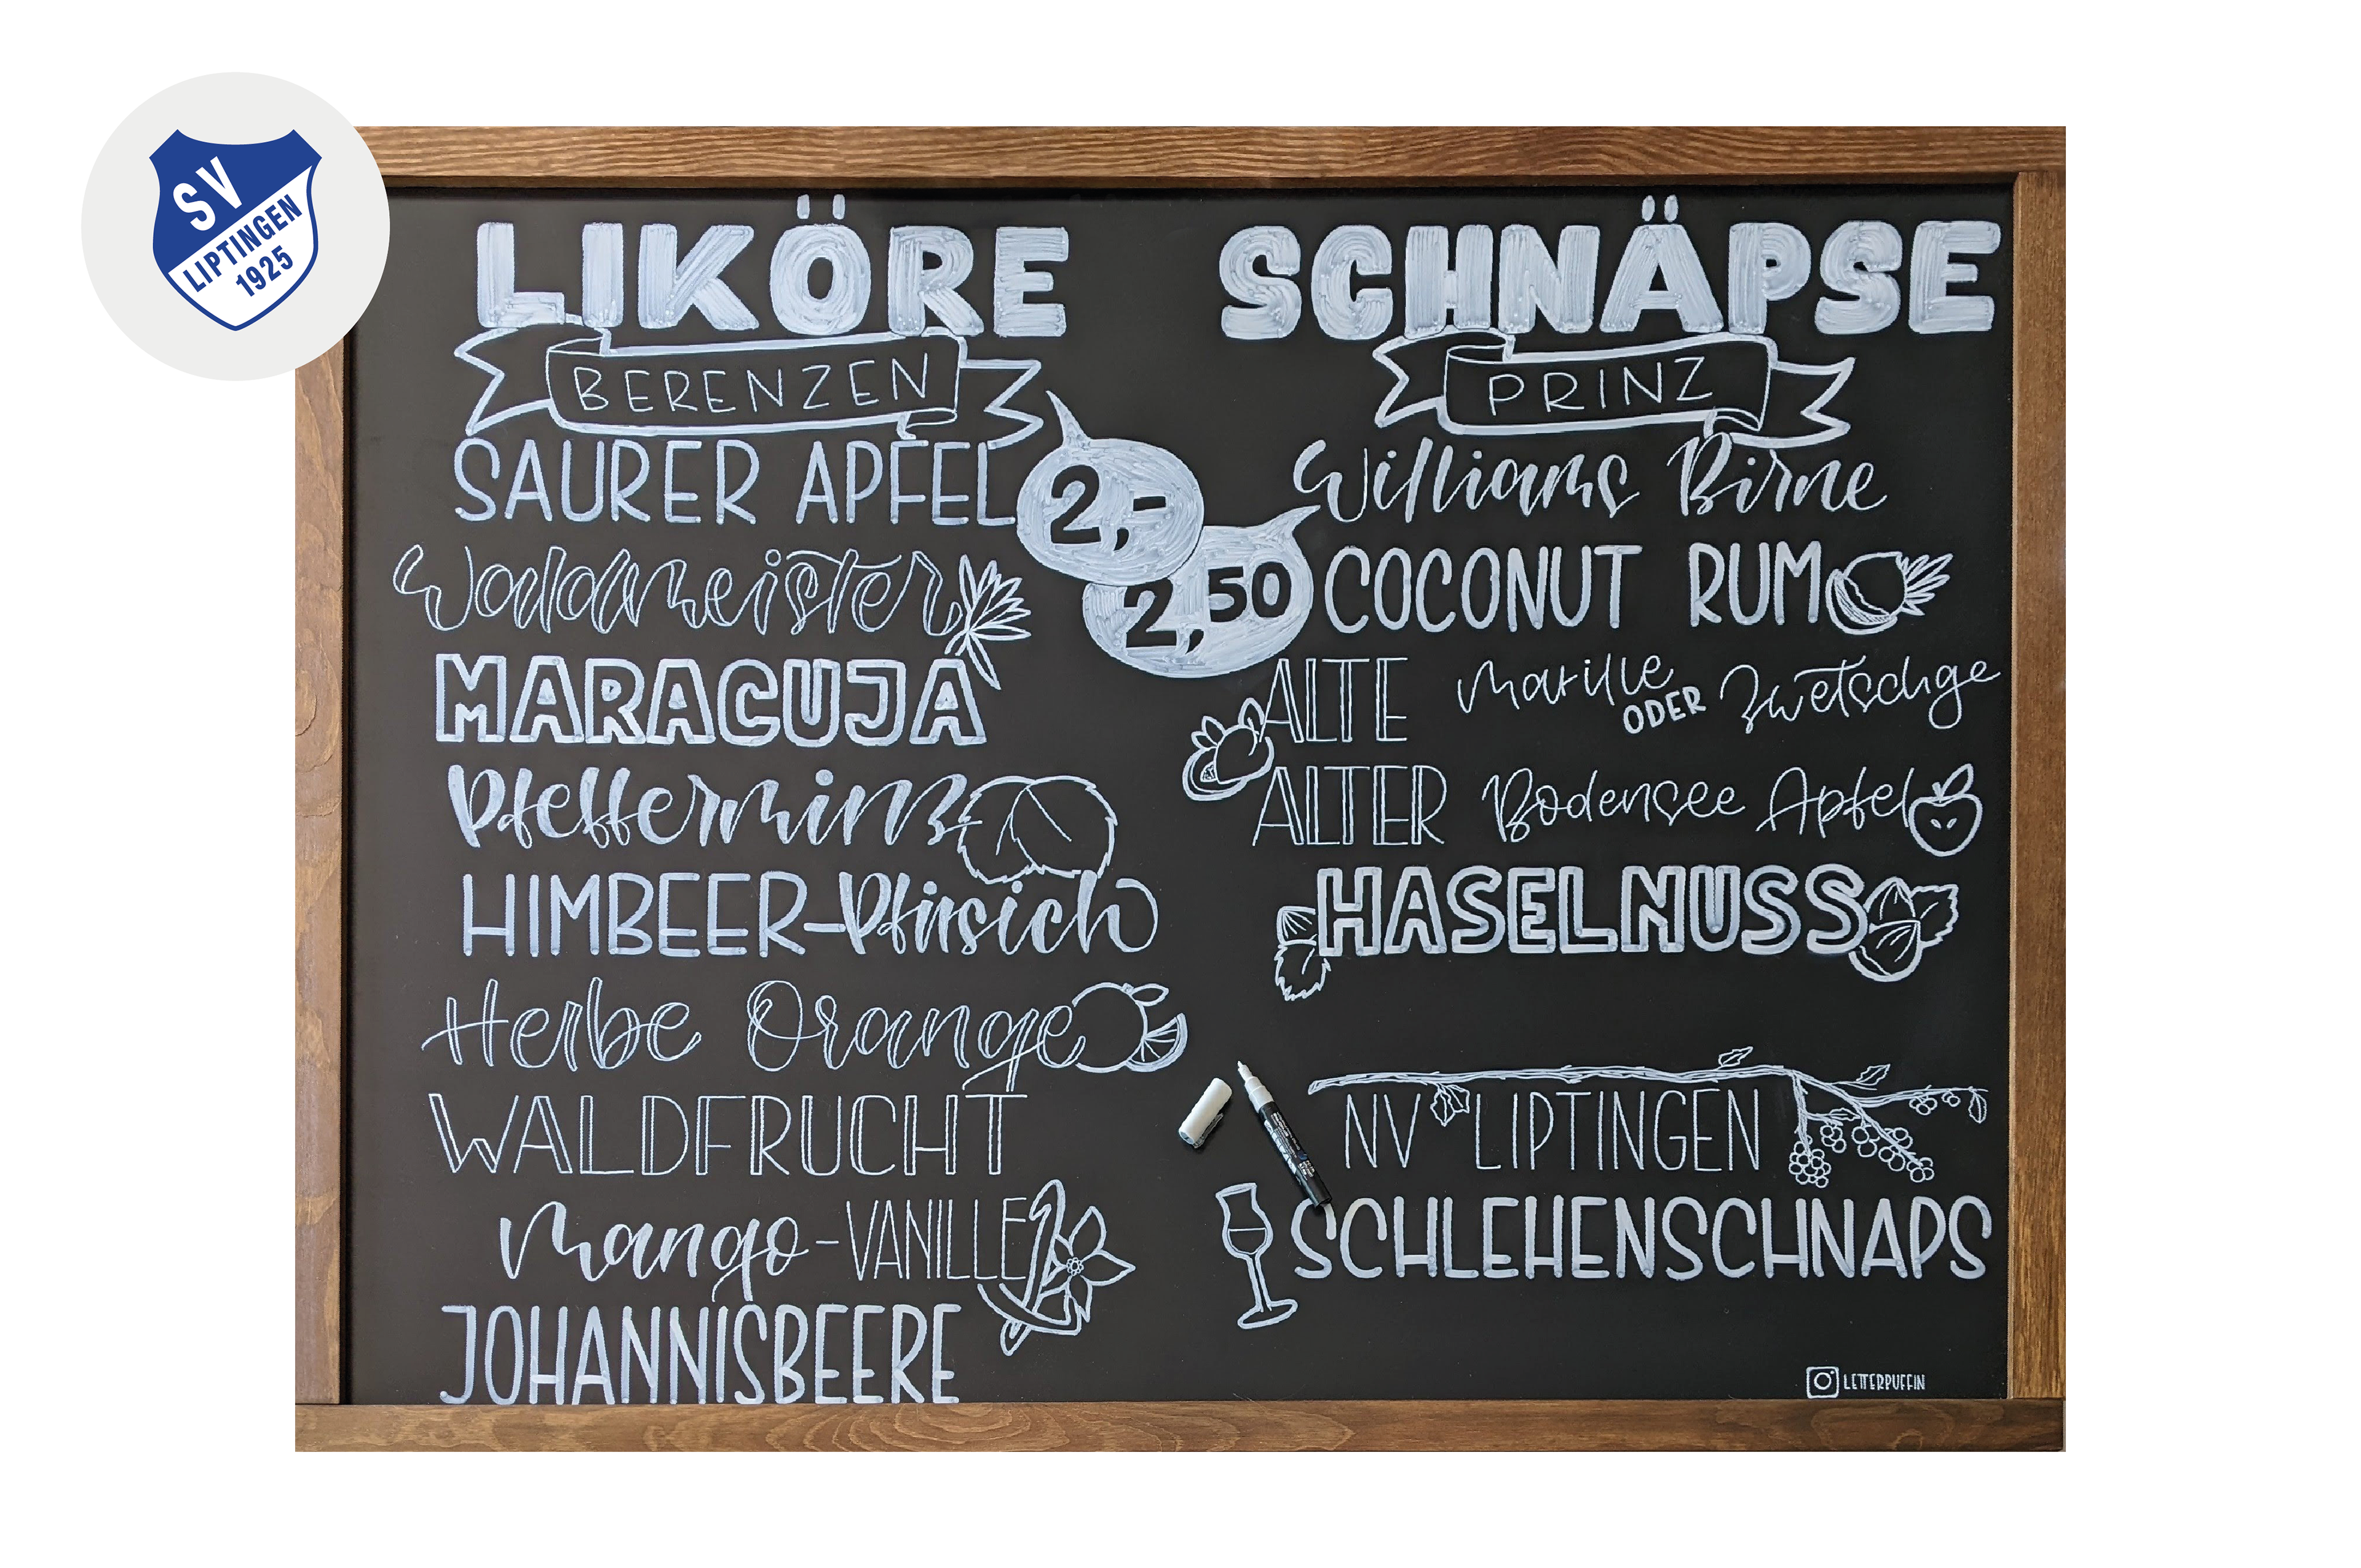 SV
LIPTINGEN
1925
LIKÖRE
BERENZEN
SAURER APFEL
2,-
Waldmeister
MARACUJA
Pfefferminz
HIMBEER-Pfirsich
Herbe Orange
WALDFRUCHT
Mango-VANILLE
JOHANNISBEERE
SCHNÄPSE
PRINZ
Williams Birne
2,50
COCONUT RUM
ALTE Marille ODER Zwetschge
ALTER Bodensee Apfel
HASELNUSS
NV LIPTINGEN
SCHLEHENSCHNAPS
LETTERPUFFIN